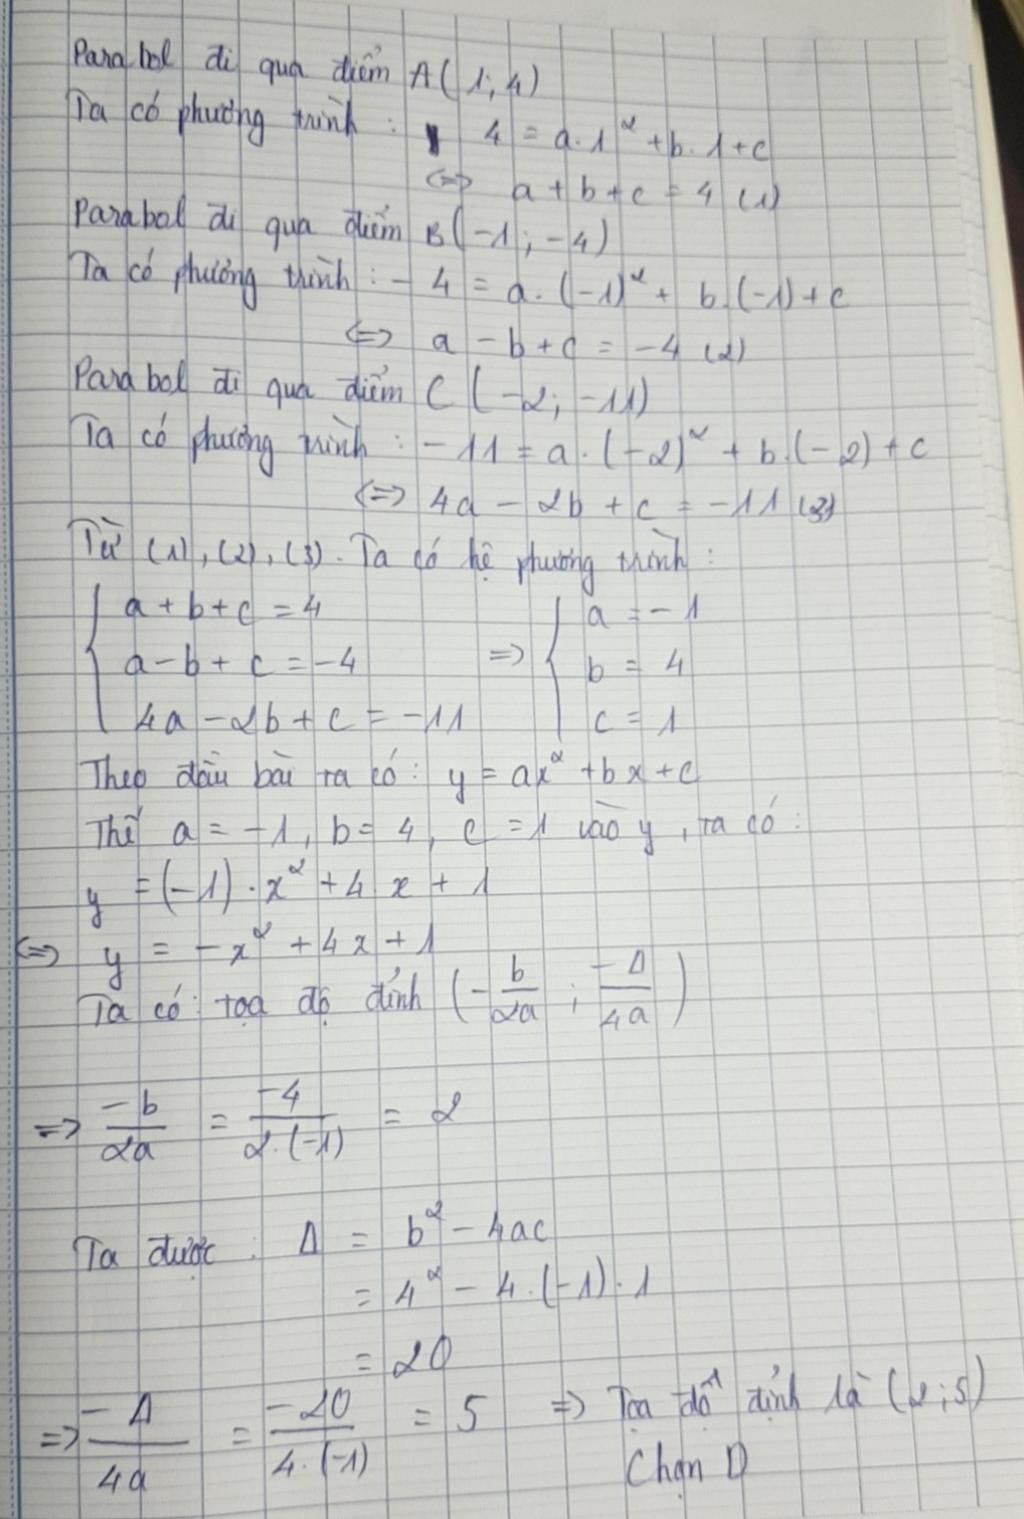 Parabol đi qua điểm A(1;4)
Ta có phương trình : 4 = a.1² + b.1+c
<=> a + b + c = 4 (1)
Parabol đi qua điểm B(-1;-4)
Ta có phương trình : -4 = a.(-1)² + b.(-1)+c
<=> a - b + c = -4 (2)
Parabol đi qua điểm C(-2;-11)
Ta có phương trình : -11 = a.(-2)² + b.(-2) + c
<=> 4a - 2b + c = -11 (3)
Từ (1), (2), (3). Ta có hệ phương trình :
{ a + b + c = 4 { a = -1
a - b + c = -4 => b = 4
4a - 2b + c = -11 c = 1
Theo đầu bài ta có : y = ax² + bx + c
Thế a = -1, b = 4, c = 1 vào y, ta có :
y = (-1).x² + 4x + 1
<=> y = -x² + 4x + 1
Ta có : tọa độ đỉnh (-b/2a ; -Δ/4a)
=> -b/2a = -4/2.(-1) = 2
Ta được : Δ = b² - 4ac
= 4² - 4.(-1).1
= 20
=> -Δ/4a = -20/4.(-1) = 5 => Tọa độ đỉnh là (2;5)
Chọn D